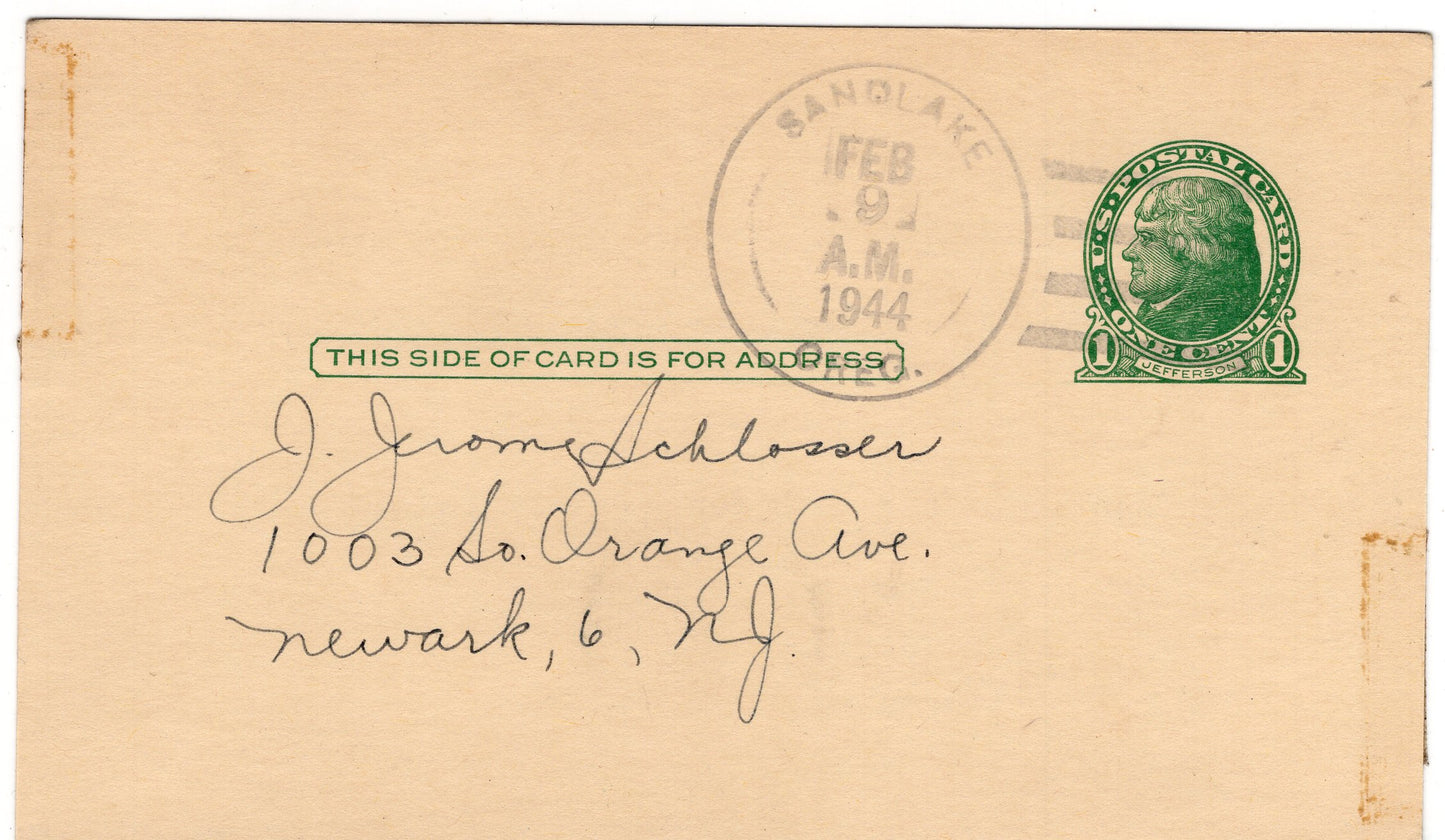 SANDLAKE
FEB
9
A.M.
1944
OREG.
U.S. POSTAL CARD
ONE CENT
1 JEFFERSON 1
THIS SIDE OF CARD IS FOR ADDRESS
J. Jerome Schlosser
1003 So. Orange Ave.
Newark, 6, NJ.